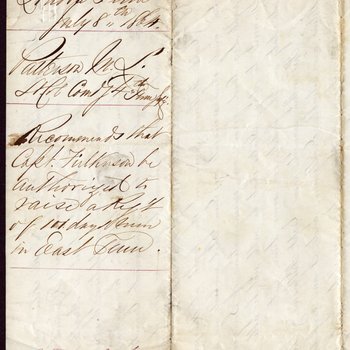 July 8th 1864.
Patterson M. L.
Lt Col Comdg 4th Tenn Inf.
Recommends that
Capt. Fulkinson be
authorized to
raise a Reg't
of 100 day's men
in East Tenn.